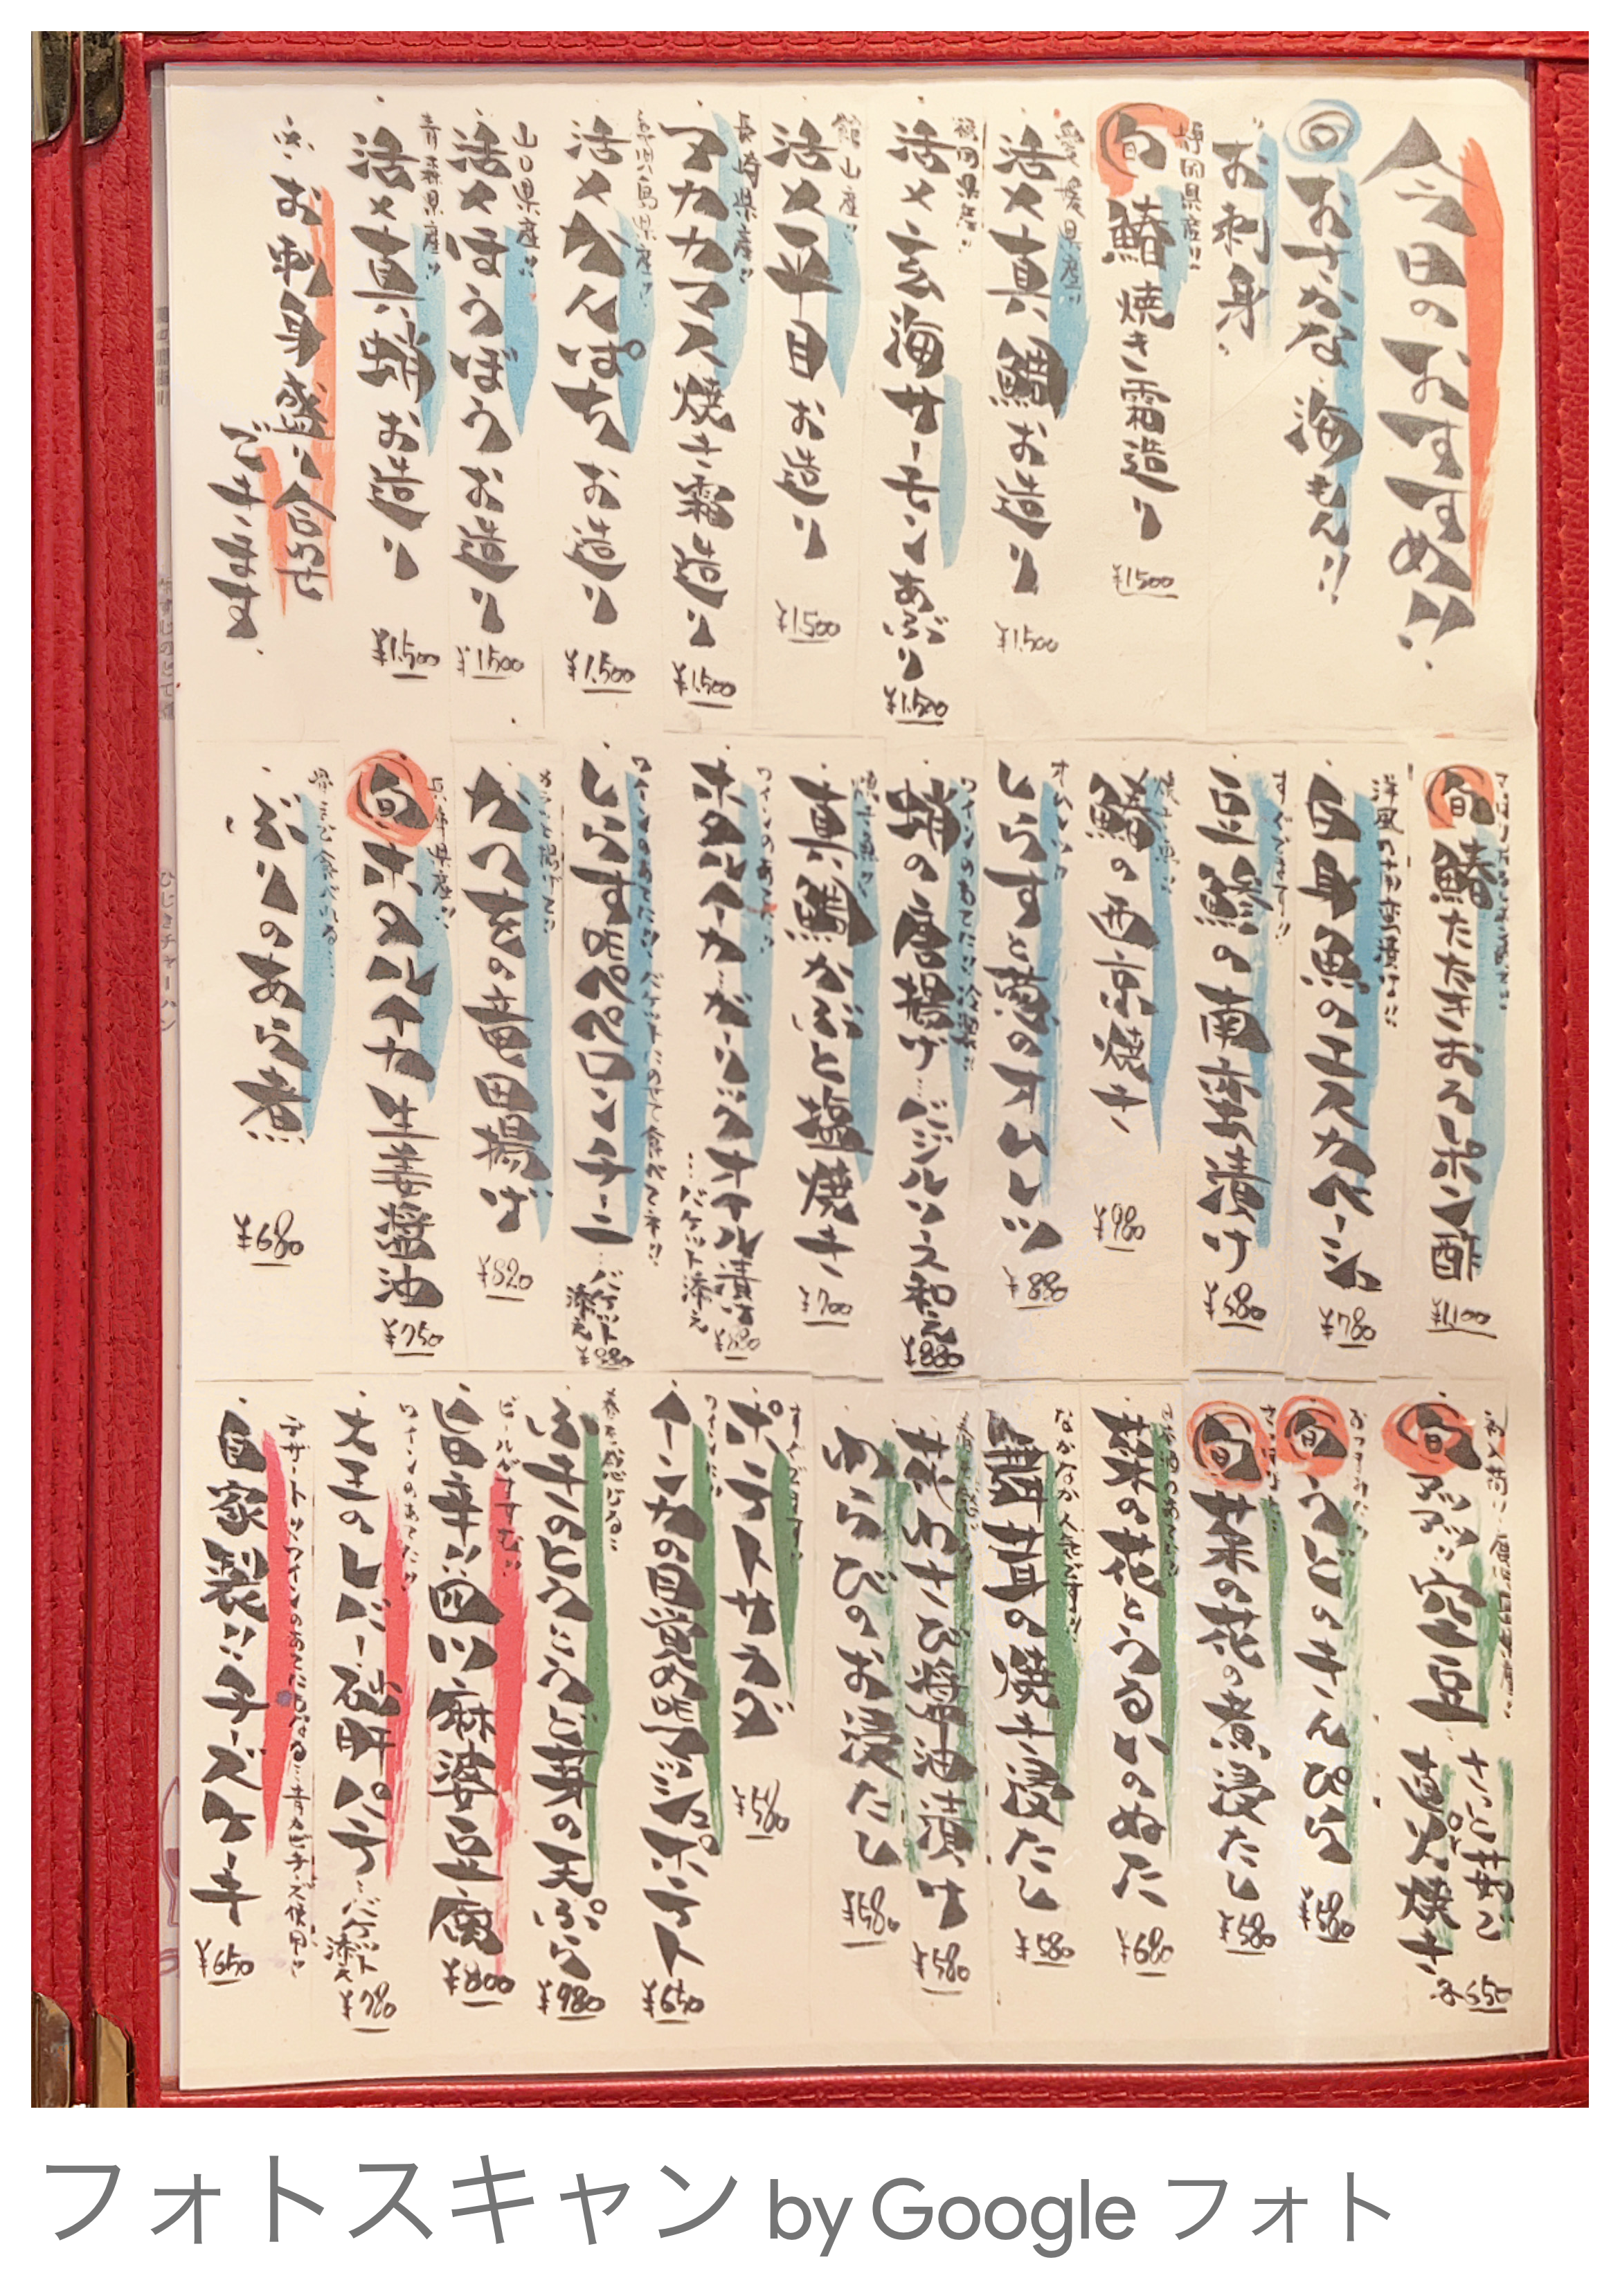 今日のおすすめ!!
回おさかな 海もん!!
お刺身
静岡県産!!
旬 鰆 焼き霜造り ¥1500
愛媛県産!!
活〆真鯛お造り ¥1,500
福岡県産!!
活〆玄海サーモンあぶり ¥1,500
館山産!!
活〆平目お造り ¥1500
長崎県産!!
アカカマス焼き霜造り ¥1,500
鹿児島県産!!
活〆かんぱちお造り ¥1,500
山口県産!!
活〆ほうぼうお造り ¥1500
青森県産!!
活〆真蛸お造り ¥1,500
※お刺身盛り合わせ
できます。
旬 鰆たたきおろしポン酢 ¥1,100
白身魚のエスカベーシュ ¥780
すぐでます!!
豆鯵の南蛮漬け ¥580
焼き魚!!
鰆の西京焼き ¥980
しらすと葱のオムレツ ¥880
ワインのあてに!!
蛸の唐揚げ…バジルソース和え ¥880
焼き魚!!
真鯛かぶと塩焼き ¥700
ワインのあてに!!
ホタルイカガーリックオイル漬け ¥880
…バケット添え
ワインのあてに!! バケットにのせて食べてネ!!
しらすペペロンチーニ…バケット添え ¥880
かつおの竜田揚げ ¥820
兵庫県産!!
旬 ホタルイカ生姜醤油 ¥750
ぶりのあら煮 ¥680
旬 空豆
さっと茹で
炭火焼き 各650
旬 うどのきんぴら ¥580
旬 菜の花の煮浸たし ¥580
菜の花とうるいのぬた ¥680
舞茸の焼き浸たし ¥580
花わさび醤油漬け ¥580
わらびのお浸たし ¥580
すぐでます!!
ポテトサラダ ¥580
インカの目覚めポテト ¥650
春を感じる!!
ふきのとうとうど芽の天ぷら ¥980
ビールがすすむ!!
旨辛い四川麻婆豆腐 ¥800
ワインのあてに!!
大王のレバー破砕パテ…バケット添え ¥780
デザートッ ワインのあてにもなる…青カビチーズ使用
自家製!!チーズケーキ ¥650
フォトスキャン by Google フォト